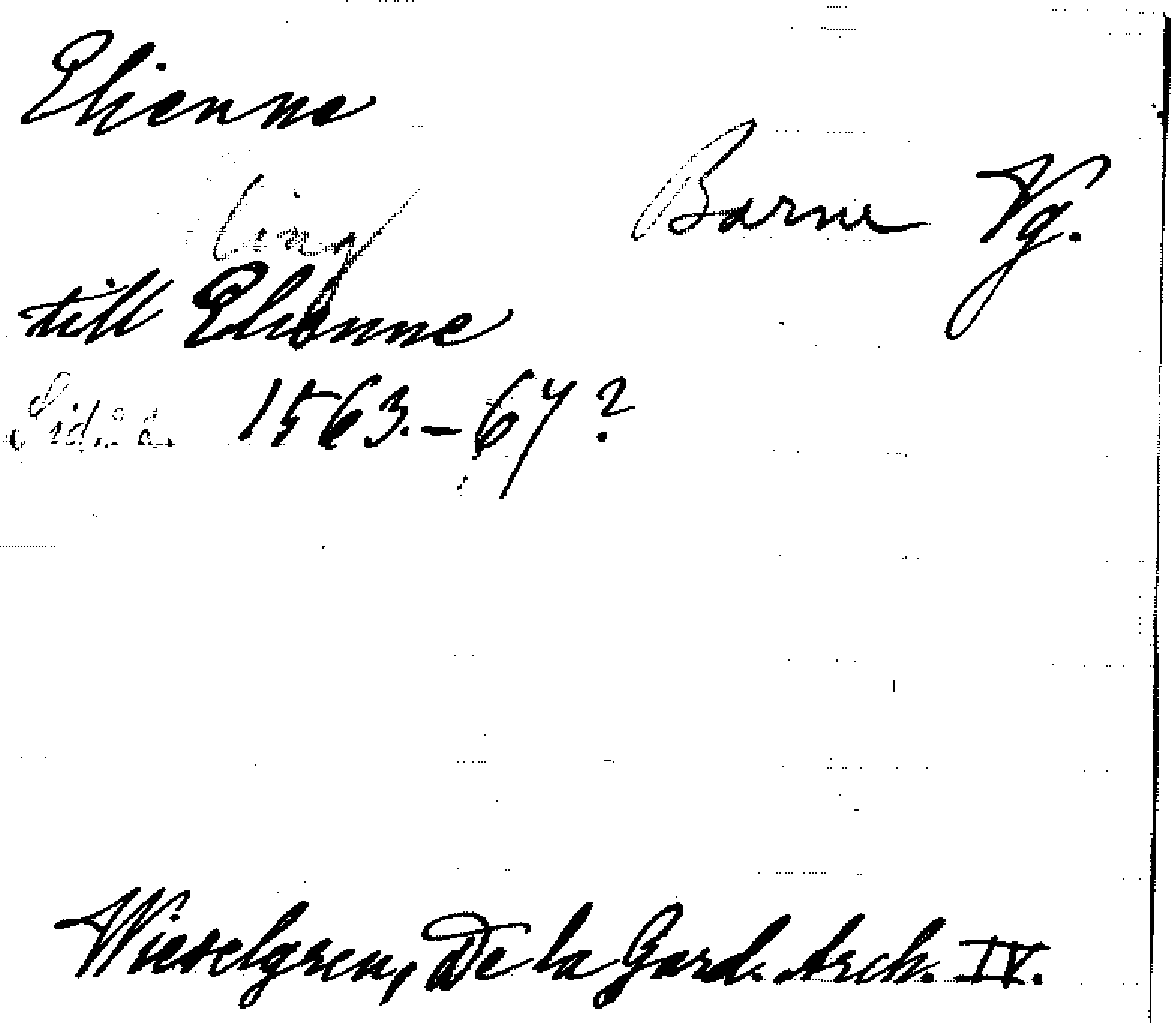 Elienne
ting
Barne Vg.
till Elienne
Sid. 2. 1563.-67?
Wieselgren, De la Gard. Arch. IV.